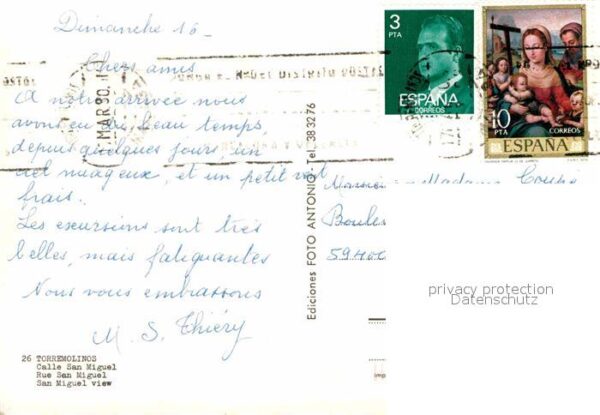 Dimanche 18 -
Chers amis
A notre arrivée nous
avons eu du beau temps,
depuis quelques jours, un
ciel nuageux, et un petit vent
frais.
Les excursions sont très
belles, mais fatiguantes
Nous vous embrassons
M. S. Thiéry
26 TORREMOLINOS
Calle San Miguel
Rue San Miguel
San Miguel view
Ediciones FOTO ANTONIO - Tel. 383276
MAR 90
3
PTA
ESPAÑA
CORREOS
10
PTA
CORREOS
ESPAÑA
Monsieur Madame
59400
privacy protection
Datenschutz